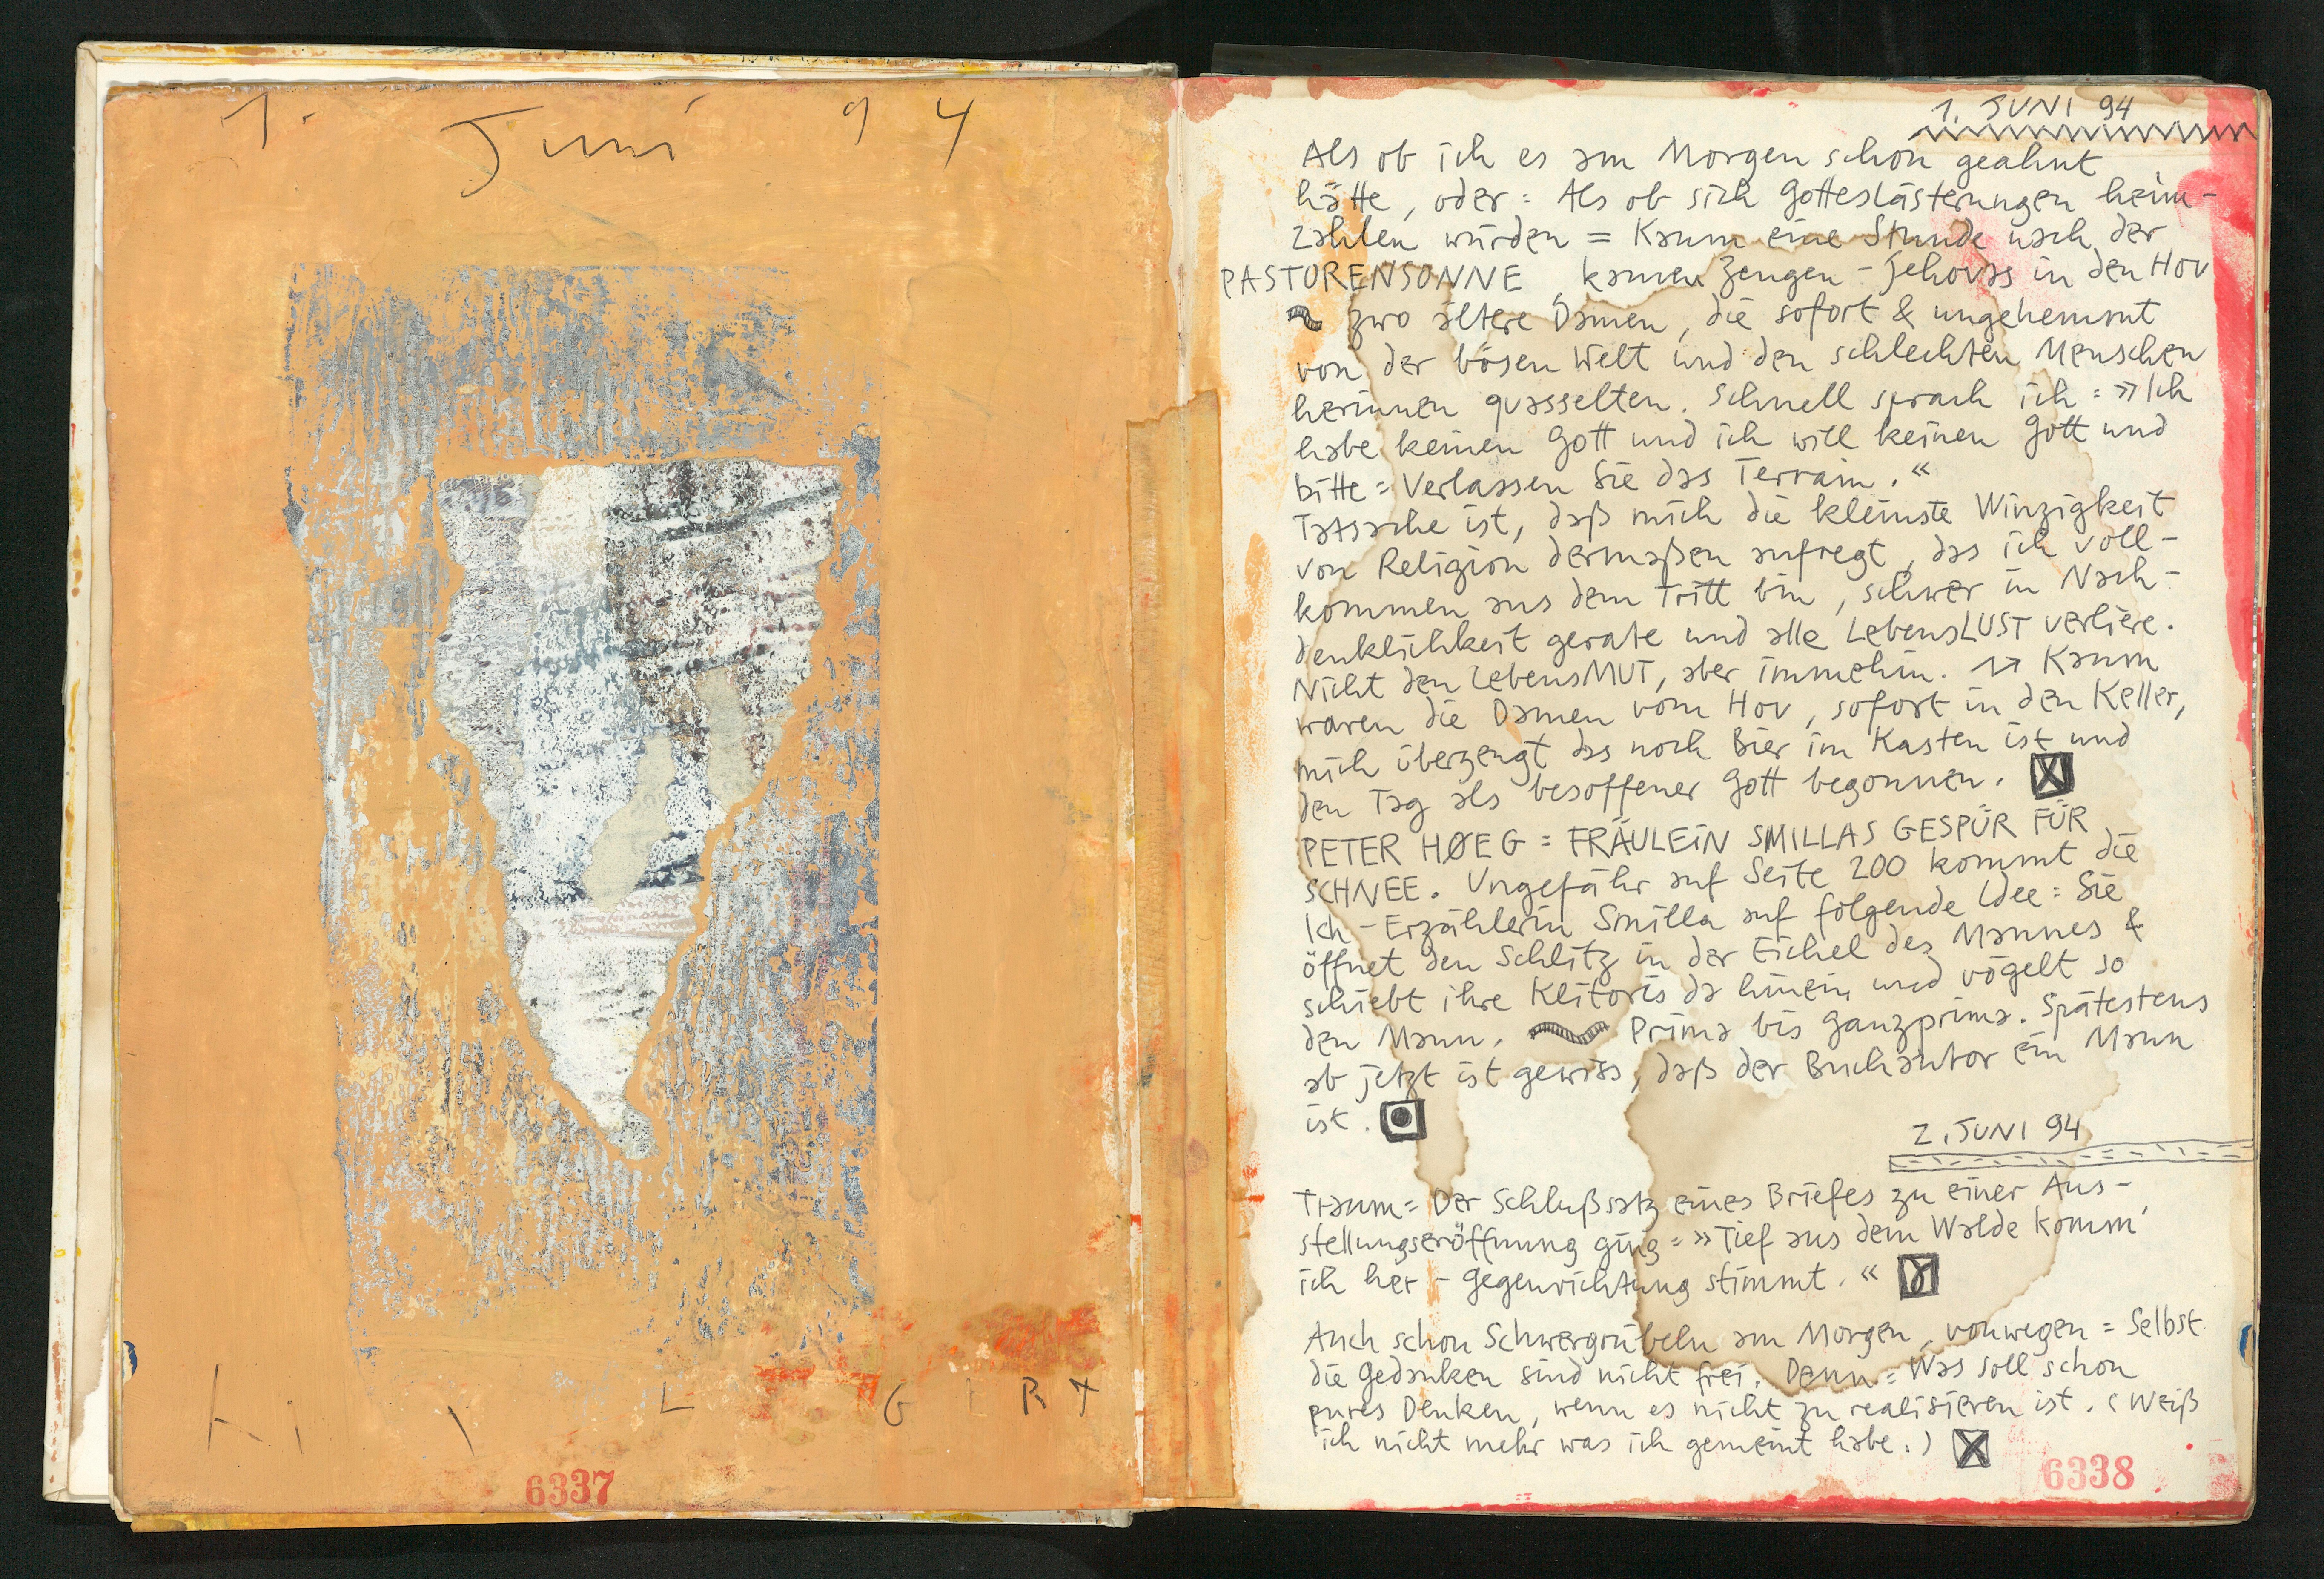 1. Juni 94
6337
1. JUNI 94
Als ob ich es am Morgen schon geahnt
hätte, oder = Als ob sich Gotteslästerungen heim-
zahlen würden = Kaum eine Stunde nach der
PASTORENSONNE, kamen Zeugen-Jehovas in den Hov
zwo ältere Damen, die sofort & ungehemmt
von der bösen Welt und den schlechten Menschen
herinnen quasselten. Schnell sprach ich = »Ich
habe keinen Gott und ich will keinen Gott und
bitte = Verlassen Sie das Terrain.«
Tatsache ist, daß mich die kleinste Winzigkeit
von Religion dermaßen aufregt, das ich voll-
kommen aus dem Tritt bin, schwer in Nach-
denklichkeit gerate und alle LebensLUST verliere.
Nicht den LebensMUT, aber immehin. Kaum
waren die Damen vom Hov, sofort in den Keller,
mich überzeugt das noch Bier im Kasten ist und
den Tag als besoffener Gott begonnen.
PETER HØEG = FRÄULEIN SMILLAS GESPÜR FÜR
SCHNEE. Ungefähr auf Seite 200 kommt die
Ich-Erzählerin Smilla auf folgende Idee = Sie
öffnet den Schlitz in der Eichel des Mannes &
schiebt ihre Klitoris da hinein und vögelt so
den Mann. Prima bis ganzprima. Spätestens
ab jetzt ist gewiss, daß der Buchautor ein Mann
ist.
2. JUNI 94
Traum = Der Schlußsatz eines Briefes zu einer Aus-
stellungseröffnung ging = »Tief aus dem Walde komm'
ich her - Gegenrichtung stimmt.«
Auch schon Schwergrübeln am Morgen, vonwegen = Selbst
die Gedanken sind nicht frei. Denn = Was soll schon
pures Denken, wenn es nicht zu realisieren ist. (Weiß
ich nicht mehr was ich gemeint habe.)
6338